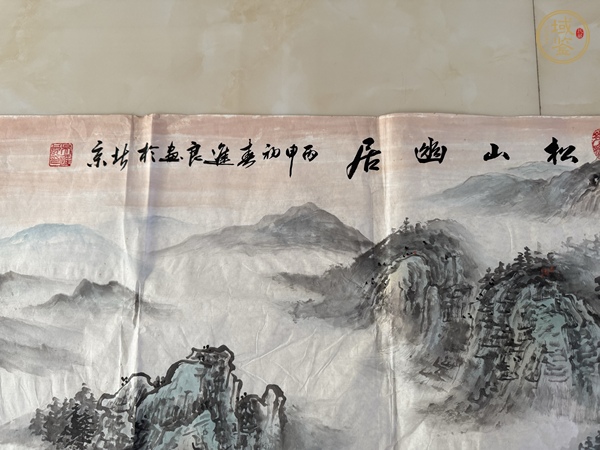 松山幽居 丙申初春進良画於北京